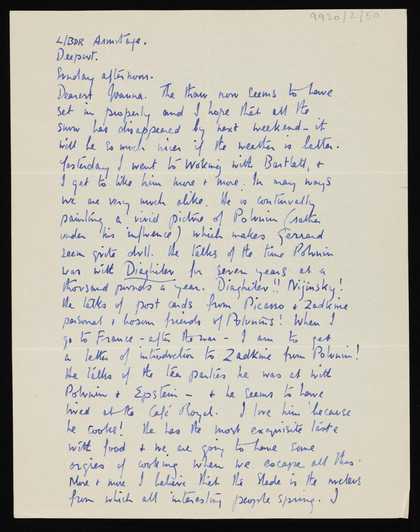 9920/2/50
L/BDR Armitage.
Deepcut.
Sunday afternoon.
Dearest Joanna. The thaw now seems to have
set in properly and I hope that all the
snow has disappeared by next weekend - it
will be so much nicer if the weather is better.
Yesterday I went to Woking with Bartlett, &
I get to like him more & more. In many ways
we are very much alike. He is continually
painting a vivid picture of Polunin (rather
under his influence) which makes Gerrard
seem quite dull. He talks of the time Polunin
was with Diaghilev for seven years at a
thousand pounds a year. Diaghilev!! Nijinsky!
He talks of post cards from Picasso & Zadkine
personal & bosum friends of Polunins! When I
go to France - after the war - I am to get
a letter of introduction to Zadkine from Polunin!
He talks of the tea parties he was at with
Polunin & Epstein - & he seems to have
lived at the Café Royal. I love him because
he cooks! He has the most exquisite taste
with food & we are going to have some
orgies of cooking when we escape all this.
More & more I believe that the Slade is the nucleus
from which all interesting people spring. I